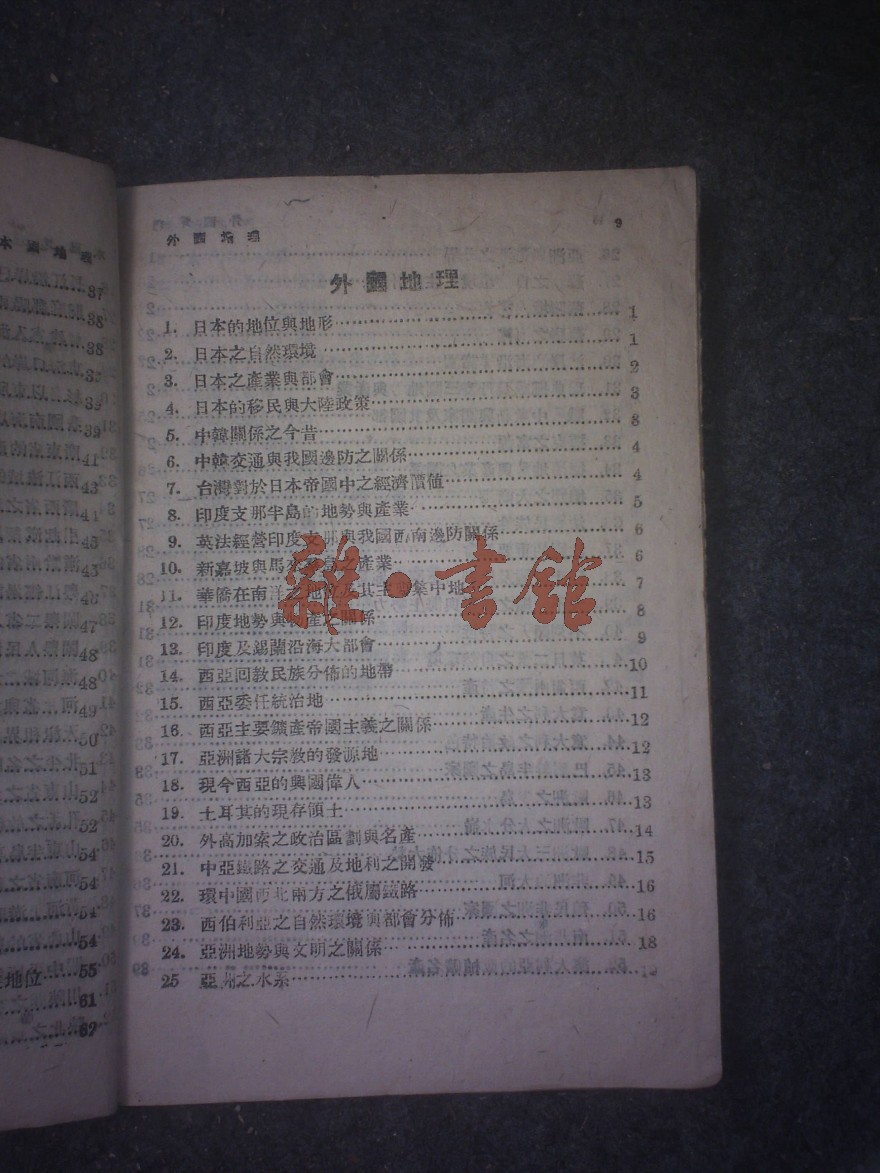 外國地理 9
外國地理
1. 日本的地位與地形 1
2. 日本之自然環境 1
3. 日本之產業與都會 2
4. 日本的移民與大陸政策 3
5. 中韓關係之今昔 8
6. 中韓交通與我國邊防之關係 4
7. 台灣對於日本帝國中之經濟價値 4
8. 印度支那半島的地勢與產業 5
9. 英法經營印度支那與我國西南邊防關係 6
10. 新嘉坡與馬來 之產業 6
11. 華僑在南洋之地位及其主要集中地 7
12. 印度地勢與 產之關係 8
13. 印度及錫蘭沿海大都會 9
14. 西亞回敎民族分佈的地帶 10
15. 西亞委任統治地 11
16. 西亞主要鑛產帝國主義之關係 12
17. 亞洲諸大宗敎的發源地 12
18. 現今西亞的興國偉人 13
19. 土耳其的現存領土 13
20. 外高加索之政治區劃與名產 14
21. 中亞鐵路之交通及地利之開發 15
22. 環中國西北兩方之俄屬鐵路 16
23. 西伯利亞之自然環境與都會分佈 16
24. 亞洲地勢與文明之關係 18
25 亞洲之水系
雜·書館
本國地理
37
38
38
39
39
41
43
44
45
43
47
48
48
49
50
51
52
52
54
54
54
54
地位 55
61
62